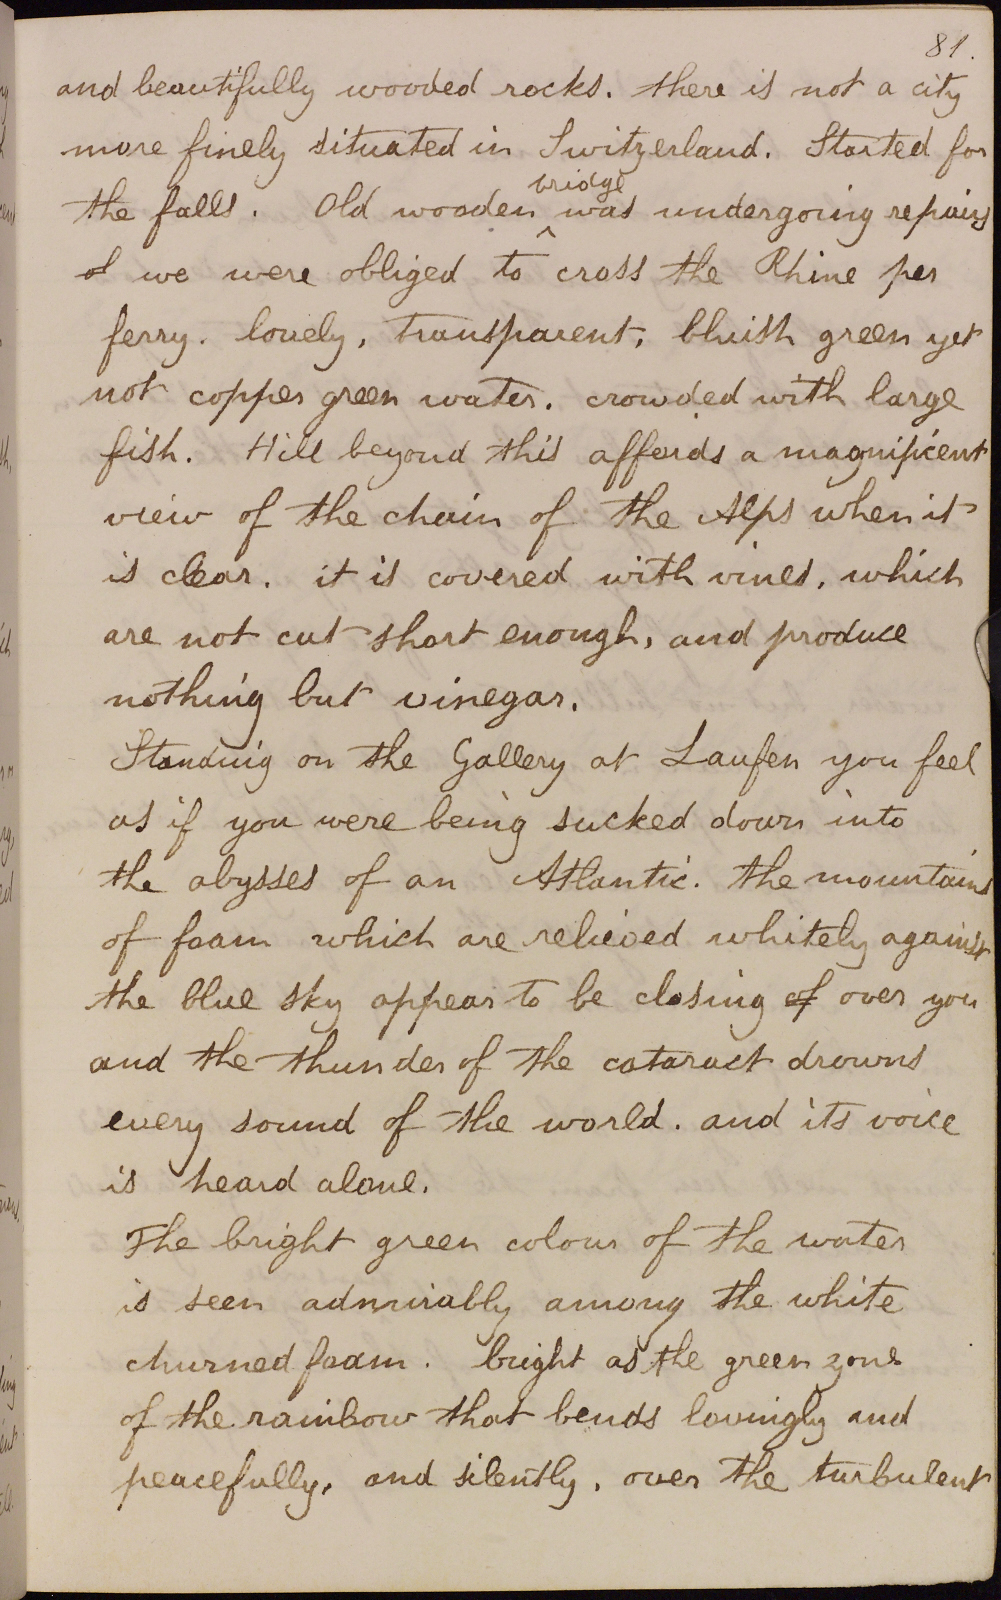 81.
and beautifully wooded rocks. there is not a city
more finely situated in Switzerland. Started for
the falls. Old wooden bridge was undergoing repairs
& we were obliged to cross the Rhine per
ferry. lovely, transparent, bluish green yet
not copper green water. crowded with large
fish. Hill beyond this affords a magnificent
view of the chain of the Alps when it
is clear. it is covered with vines, which
are not cut short enough, and produce
nothing but vinegar.
Standing on the Gallery at Laufen you feel
as if you were being sucked down into
the abysses of an Atlantic. the mountains
of foam which are relieved whitely against
the blue sky appear to be closing of over you
and the thunder of the cataract drowns
every sound of the world. and its voice
is heard alone.
The bright green colour of the water
is seen admirably among the white
churned foam. bright as the green zone
of the rainbow that bends lovingly and
peacefully, and silently, over the turbulent